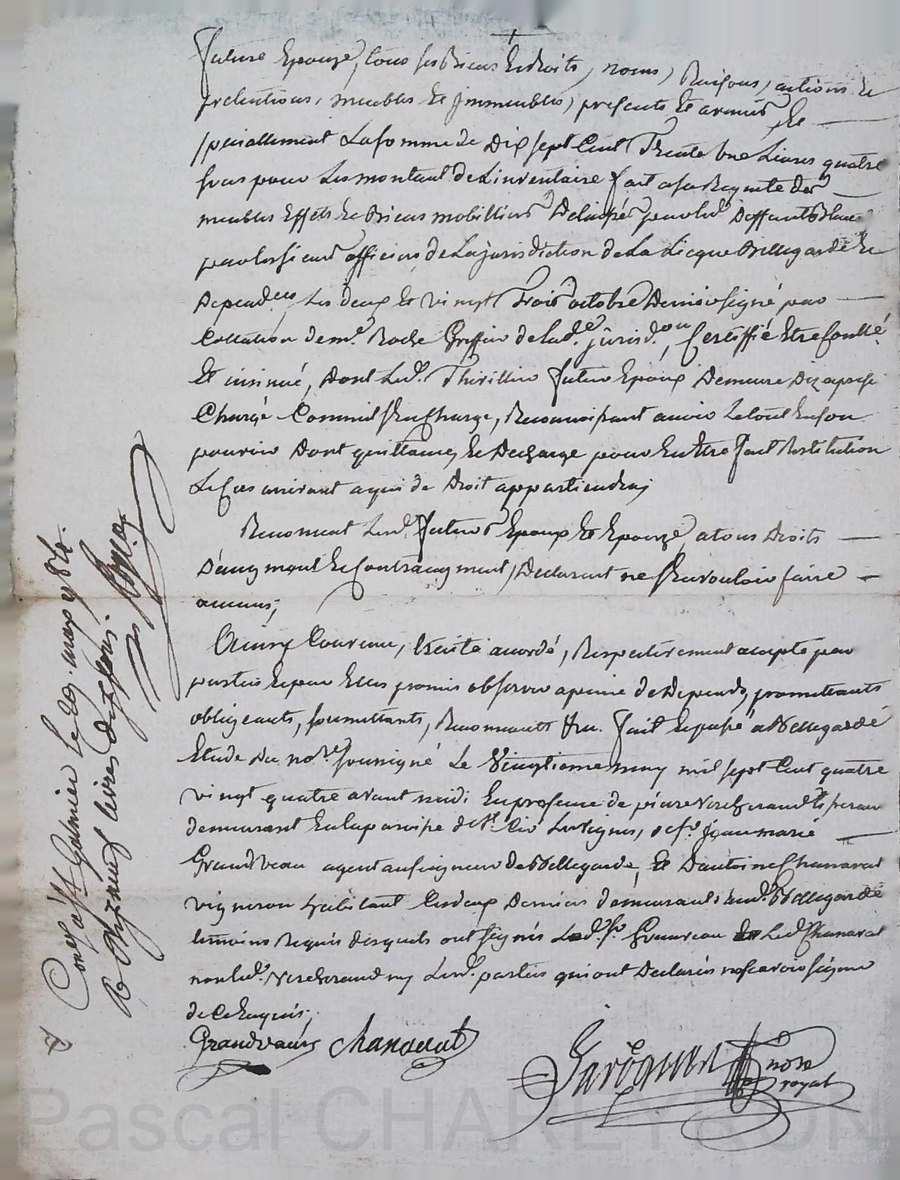 future Epouze, tous ses Biens Et droits, noms, Raisons, actions Et
pretentions, meubles Et jmmeubles, presents Et avenir, Et
specialement La somme de Dix sept Cent Trente une Livres quatre
sous pour Le montant de L'inventaire fait a sa Requete des
meubles Effets Et Biens mobilliers Delaissés par led. Deffunt
par les sieurs officiers de La jurisdiction de La Bellegarde Et
Depend.ces Les deux Et vingt Trois octobre Dernier signé par
Collation de m.e Roche Greffier de lad.e jurisd.on, Certiffié Etre
Et insinué, Dont Led. Thirillier futur Epoux Demeure Dez a present
Chargé Comme il s'en Charge, Reconoissant avoir Le tout En son
pouvoir Dont quittance, Et Decharge pour En Etre fait Restitution
Le Cas arrivant a qui de Droit appartiendra;
Renoncent Lesd. futurs Epoux Et Epouze a tous Droits
D'augment Et Contraugment, Declarant ne s'En vouloir faire
aucuns;
Ainsy Convenu, traité acordé, Respectivement accepté par
parties Et par Elles promis observer a peine de Depends, promettants
obligeants, soumettants, Renonceants &c. fait Et passé a Bellegarde
Etude du no.re soussigné Le Vingtieme may mil sept Cent quatre
vingt quatre avant midi En presence de pierre Vercherand
demeurant En La paroisse de st. Cir Les Vignes, de s.r jean marie
Grandveau agent au seigneur de Bellegarde, Et D'antoine Chanavat
vigneron habitant Les deux Derniers demeurants aud. Bellegarde
temoins Requis desquels ont signés Led. s.r Granveau Et Led. Chanavat
non led. Vercherand ny Lesd. parties qui ont Declarés ne scavoir signer
de Ce Enquis;
Grandveau Chanavat
no.re
royal
Con.lé a s.t Galmier le 28. may 1784.
R. livres dix sous.
Pascal CHAREYRON